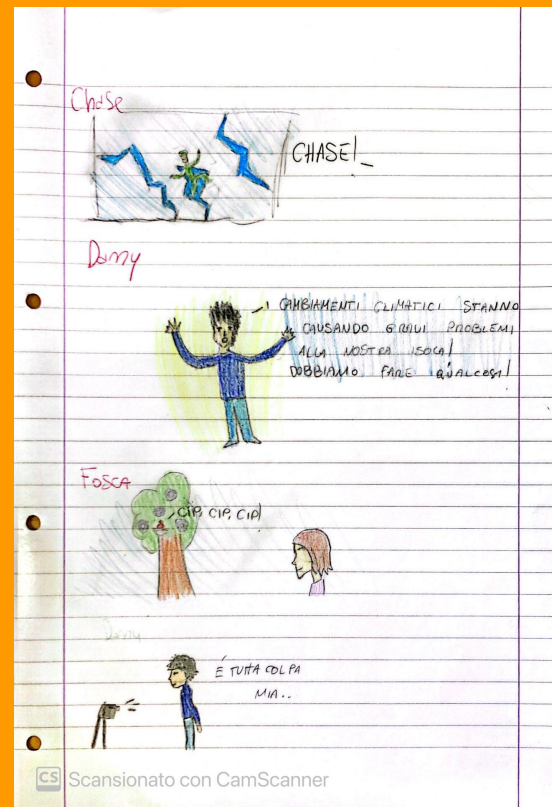 Chase
CHASE!
Danny
I CAMBIAMENTI CLIMATICI STANNO
CAUSANDO GRAVI PROBLEMI
ALLA NOSTRA ISOLA!
DOBBIAMO FARE QUALCOSA!
FOSCA
CIP, CIP, CIP!
Danny
È TUTTA COLPA
MIA..
CS Scansionato con CamScanner